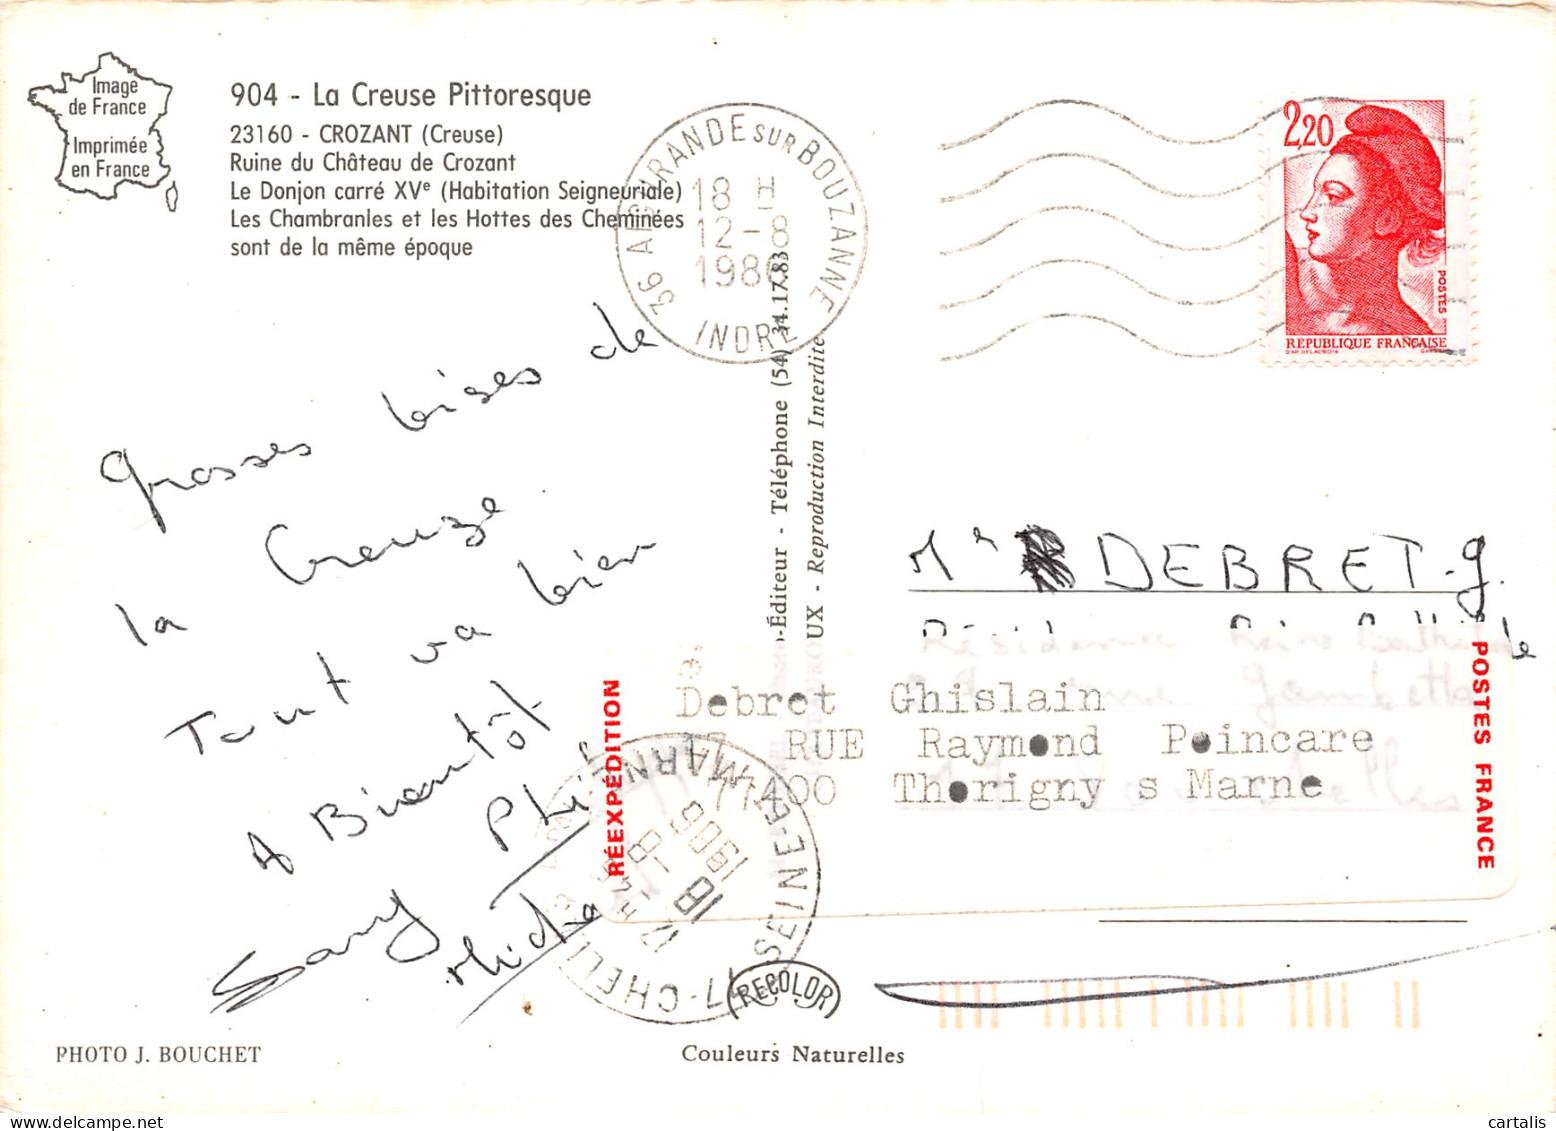 Image
de France
Imprimée
en France
904 - La Creuse Pittoresque
23160 - CROZANT (Creuse)
Ruine du Château de Crozant
Le Donjon carré XVᵉ (Habitation Seigneuriale)
Les Chambranles et les Hottes des Cheminées
sont de la même époque
36 ARGURANDE SUR BOUZANNE
18 H
12-8
1986
INDRE
2,20
POSTES
REPUBLIQUE FRANÇAISE
D'AP. DELACROIX
grosses bises de
la Creuze
Tout va bien
A Bientôt
Samy Phil
Micka
-Éditeur - Téléphone (54) 34.17.83
UX - Reproduction Interdite
Mr DEBRET.g.
RÉEXPÉDITION
Debret Ghislain
RUE Raymond Poincare
77400 Thorigny s Marne
POSTES FRANCE
77-CHELLES
SEINE-ET-MARNE
18
RECOLOR
PHOTO J. BOUCHET
Couleurs Naturelles
cartalis